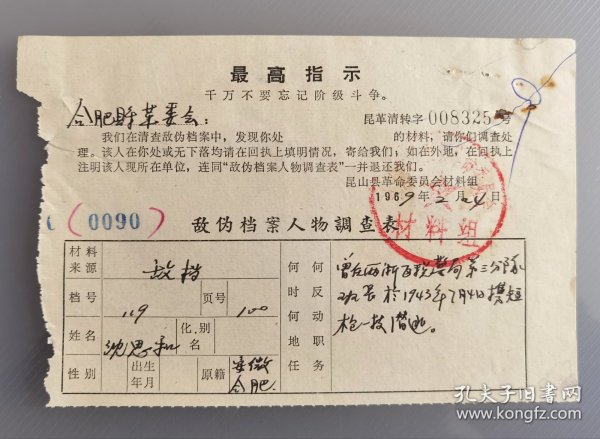 最高指示
千万不要忘记阶级斗争。
合肥县革委会：
昆革清转字 008325 号
我们在清查敌伪档案中，发现你处 的材料，请你们调查处
理。该人在你处或无下落均请在回执上填明情况，寄给我们；如在外地，在回执上
注明该人现所在单位，连同“敌伪档案人物调查表”一并退还我们。
昆山县革命委员会材料组
1969年2月24日
材料组
(0090)
敌伪档案人物調查表
材料来源 敌档
档号 119 页号 100
姓名 沈思和 化、别名
性别 出生年月 原籍 安徽合肥.
何时何地 何反动职任务
曾在 局第三分隊
班长於1943年7月4日携短
枪一枝潜逃。
孔夫子旧书网
www.kongfz.com